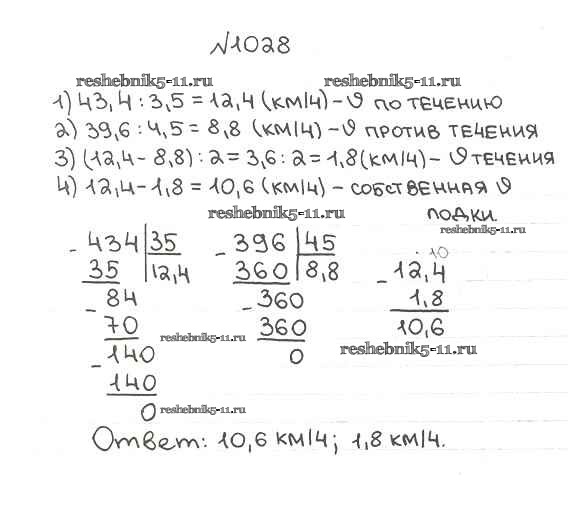 №1028
reshebnik5-11.ru reshebnik5-11.ru
1) 43,4 : 3,5 = 12,4 (км/ч) – υ по течению
2) 39,6 : 4,5 = 8,8 (км/ч) – υ против течения
3) (12,4 - 8,8) : 2 = 3,6 : 2 = 1,8 (км/ч) – υ течения
4) 12,4 – 1,8 = 10,6 (км/ч) – собственная υ
reshebnik5-11.ru лодки.
reshebnik5-11.ru
10
- 434 | 35 - 396 | 45 - 12,4
35 | 12,4 360 | 8,8 1,8
- 84 - 360 10,6
70 reshebnik5-11.ru 360
- 140 0 reshebnik5-11.ru
140
0 reshebnik5-11.ru
Ответ: 10,6 км/ч; 1,8 км/ч.